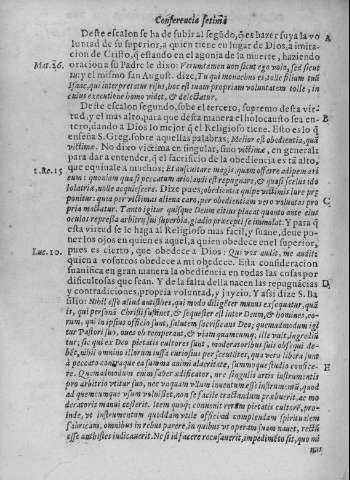 Conferencia setima
Deste escalon se ha de subir al segũdo, q̃ es hazer suya la vo A
luntad de su superior, a quien tiene en lugar de Dios, a imita-
cion de Cristo, q̃ estando en el agonia de la muerte, haziendo
Mat. 26. oracion a su Padre le dixo: Veruntamen non sicut ego volo, sed sicut
tu: y el mismo san August. dize, Tu qui monachus es, tolle filium tuũ
Isaac, qui interpretatur risus, hoc est tuam propriam voluntatem tolle, in
cuius executione homo videt, & delectatur.
Deste escalon segundo, sube el tercero, supremo desta vir- B
tud, y el mas alto, para que desta manera el holocausto sea en-
tero, dando a Dios lo mejor q̃ el Religioso tiene. Esto es lo q̃
enseña S. Greg. sobre aquellas palabras; Melior est obedientia, quã
victimæ. No dixo victima en singular, sino victimæ, en general a
para dar a entender, q̃ el sacrificio de la obediencia es tã alto,
1. Re. 15 que equiuale a muchos: Et auscultare magis, quam offerre adipem ari
etum: quoniam quasi peccatum ariolandi est repugnare, & quasi scelus ido
lolatriæ, nolle acquiescere. Dize pues, obediencia quipe victimis iure præ
ponitur: quia per victimas aliena caro, per obedientiam vero voluntas pro C
pria mactatur. Tanto igitur quisque Deum citius placat quanto ante eius
oculos repressa arbitrij sui superbia, gladio præcepti se immolat. Y para q̃
esta virtud se le haga al Religioso mas facil, y suaue, deue po-
ner los ojos en quien es aquel, a quien obedece en el superior,
Luc. 10. pues es cierto, que obedece a Dios: Qui vos audit, me audit:
quien a vosotros obedece a mi obedece. Esta consideracion
suauifica en gran manera la obediencia en todas las cosas por
dificultosas que sean. Y de la falta della nacen las repugnãcias D
y contradiciones, propria voluntad, y juyzio. Y assi dize S. Ba
silio: Nihil esse aliud antistites, qui modo diligẽter munus exsequatur, quã
is, qui personã Christi sustinet, & sequester est inter Deum, & homines, eo-
rum, qui in ipsius officio sunt, salutem sacrificans Deo; quemadmodum igi
tur Pastori suo, oues obtemperant, & viam quamcumq; ille vult, ingrediũ
tur; sic qui ex Deo pietatis cultores sunt, moderatoribus suis obsequi de-
bẽt, nihil omnino illorum iussa curiosius perscrutãtes, qua vero libera sunt
à peccato contraque ea summa animi alacritate, summoque studio confice-
re. Quemadmodum enim faber ædificator, vtr singulis artis instrumentis E
pro arbitrio vtitur suo, nec vnquam vllum inuentum est instrumẽtũ, quod
ad quemcumque vsum voluisset, non se facile tractandum præbuerit, ac mo
deratoris manui cesserit. Item quoq; conuenit verum pietatis cultorẽ, pro-
inde, vt instrumentum quoddam vtile officiad complendam spiritualem
fabricam, omnibus in rebus parere, in quibus vt operam suam nauet, rectũ
esse antistites iudicauerit. Ne si id facere recusauerit, impedimẽto sit, quo mi
nus